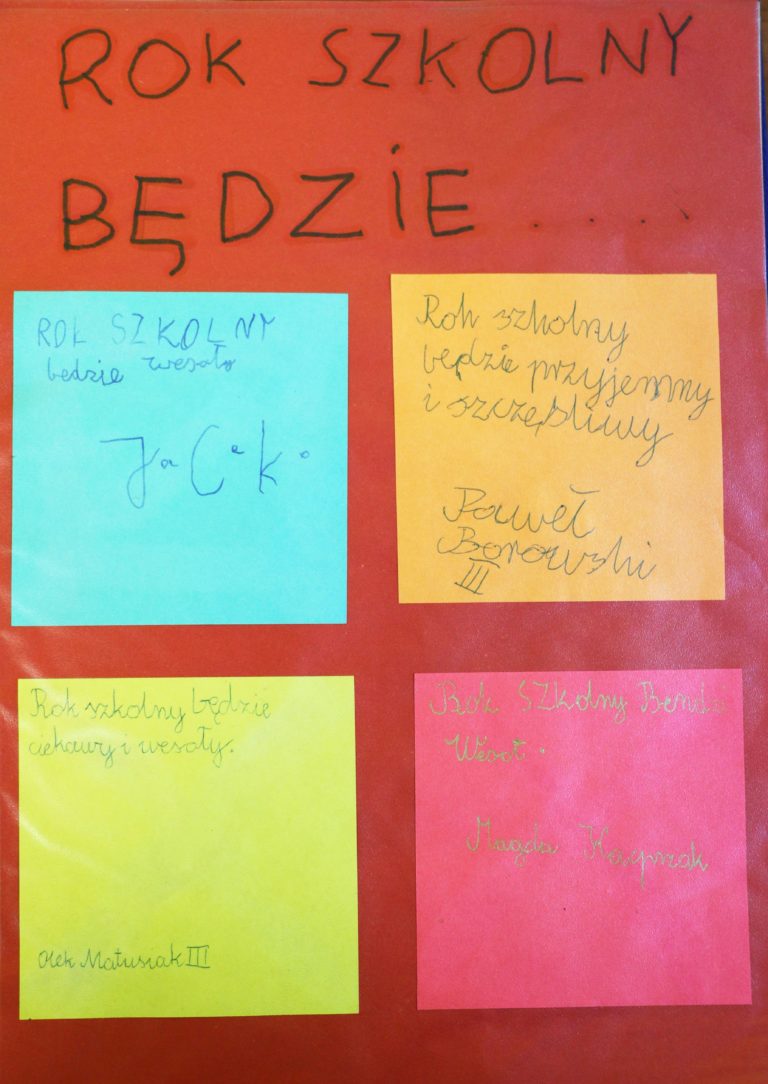 ROK SZKOLNY
BĘDZIE ....
ROL SZKOLNY
będzie wesoło
JaCek.
Rok szkolny
będzie przyjemny
i szczęśliwy
Paweł
Borowski
III
Rok szkolny będzie
ciekawy i wesoły.
Olek Matusiak III
SZkolny
Magda